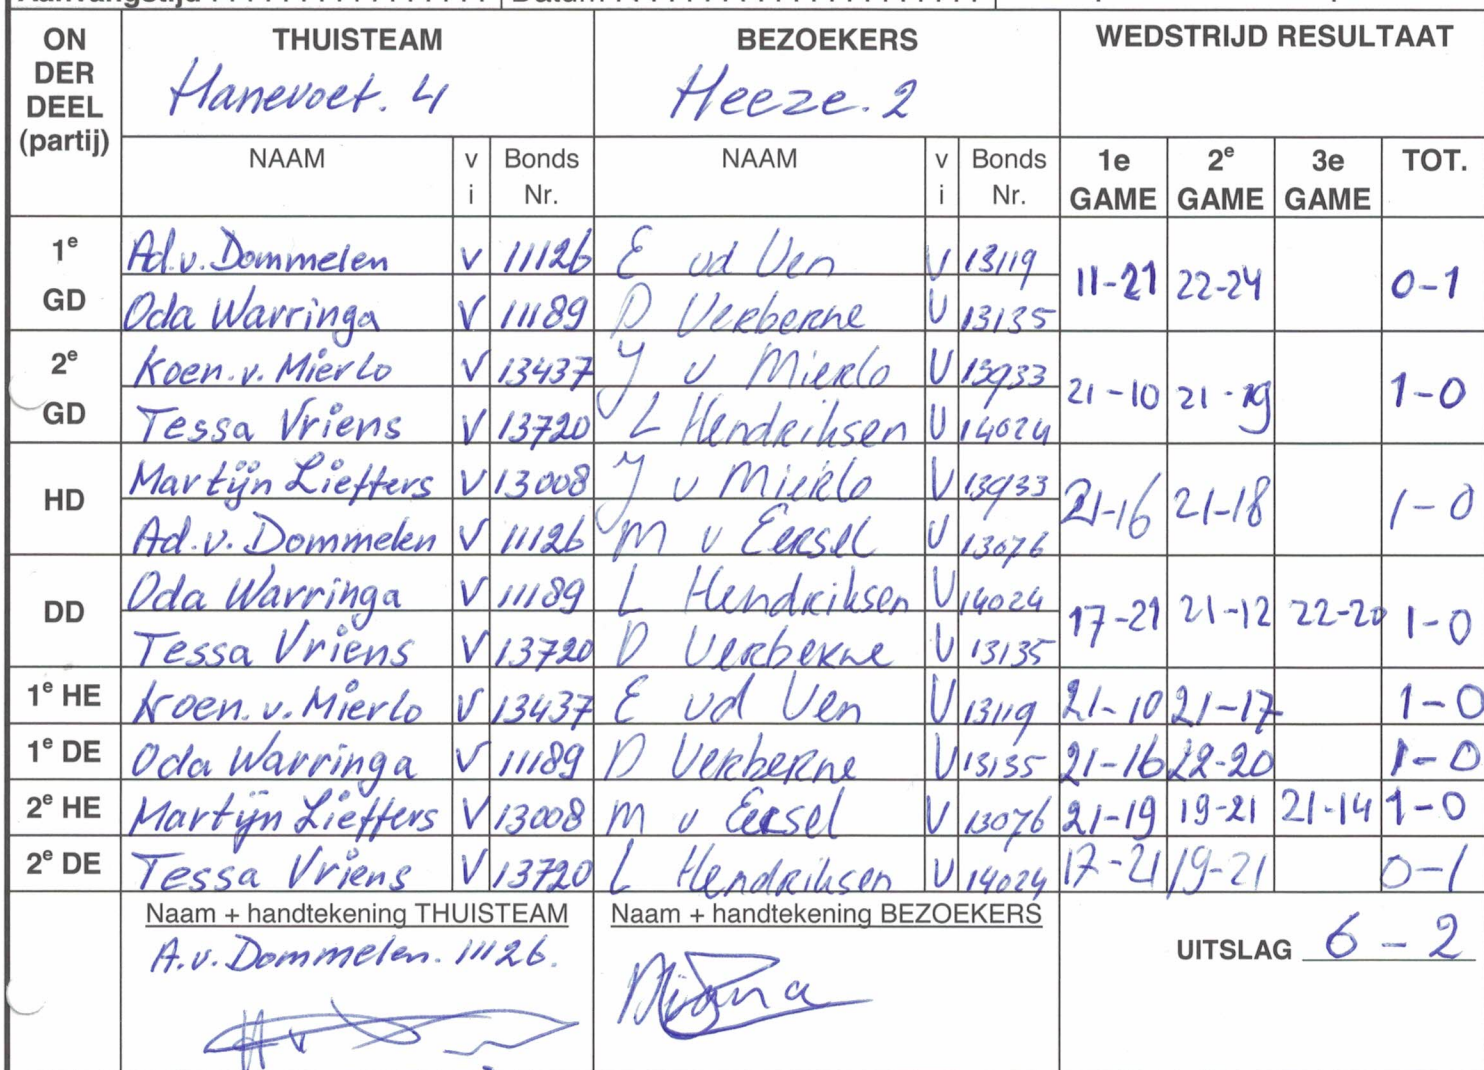 ON DER DEEL (partij) THUISTEAM BEZOEKERS WEDSTRIJD RESULTAAT
Hanevoet. 4 Heeze. 2
NAAM v i Bonds Nr. NAAM v i Bonds Nr. 1e GAME 2e GAME 3e GAME TOT.
1e GD Ad.v.Dommelen V 11126 E vd Ven V 13119 11-21 22-24 0-1
Oda Warringa V 11189 D Verberne V 13135
2e GD Koen.v.Mierlo V 13437 J v Mierlo V 13933 21-10 21-19 1-0
Tessa Vriens V 13720 L Hendriksen V 14024
HD Martijn Lieffers V 13008 J v Mierlo V 13933 21-16 21-18 1-0
Ad.v.Dommelen V 11126 M v Eersel V 13076
DD Oda Warringa V 11189 L Hendriksen V 14024 17-21 21-12 22-20 1-0
Tessa Vriens V 13720 D Verberne V 13135
1e HE Koen.v.Mierlo V 13437 E vd Ven V 13119 21-10 21-17 1-0
1e DE Oda Warringa V 11189 D Verberne V 13135 21-16 22-20 1-0
2e HE Martijn Lieffers V 13008 M v Eersel V 13076 21-19 19-21 21-14 1-0
2e DE Tessa Vriens V 13720 L Hendriksen V 14024 17-21 19-21 0-1
Naam + handtekening THUISTEAM Naam + handtekening BEZOEKERS
A.v.Dommelen. 11126. UITSLAG 6 - 2